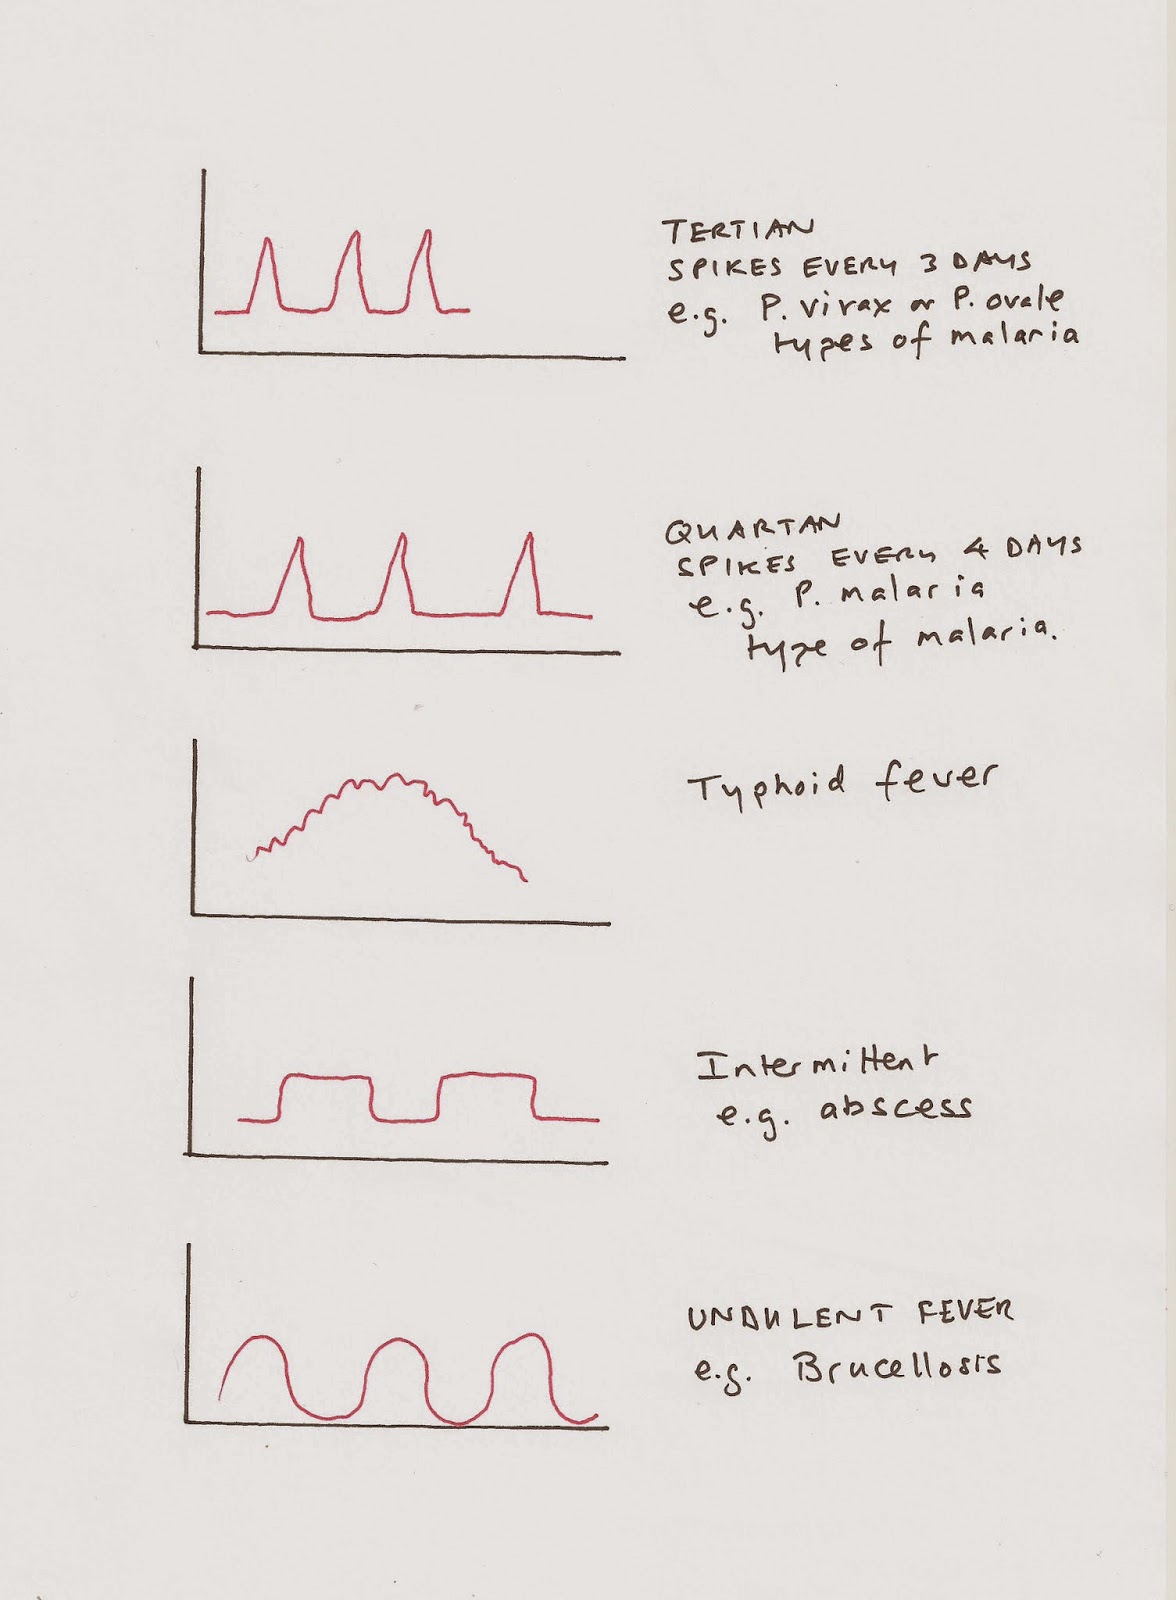 TERTIAN
SPIKES EVERY 3 DAYS
e.g. P. virax or P. ovale
types of malaria
QUARTAN
SPIKES EVERY 4 DAYS
e.g. P. malaria
type of malaria.
Typhoid fever
Intermittent
e.g. abscess
UNDULENT FEVER
e.g. Brucellosis